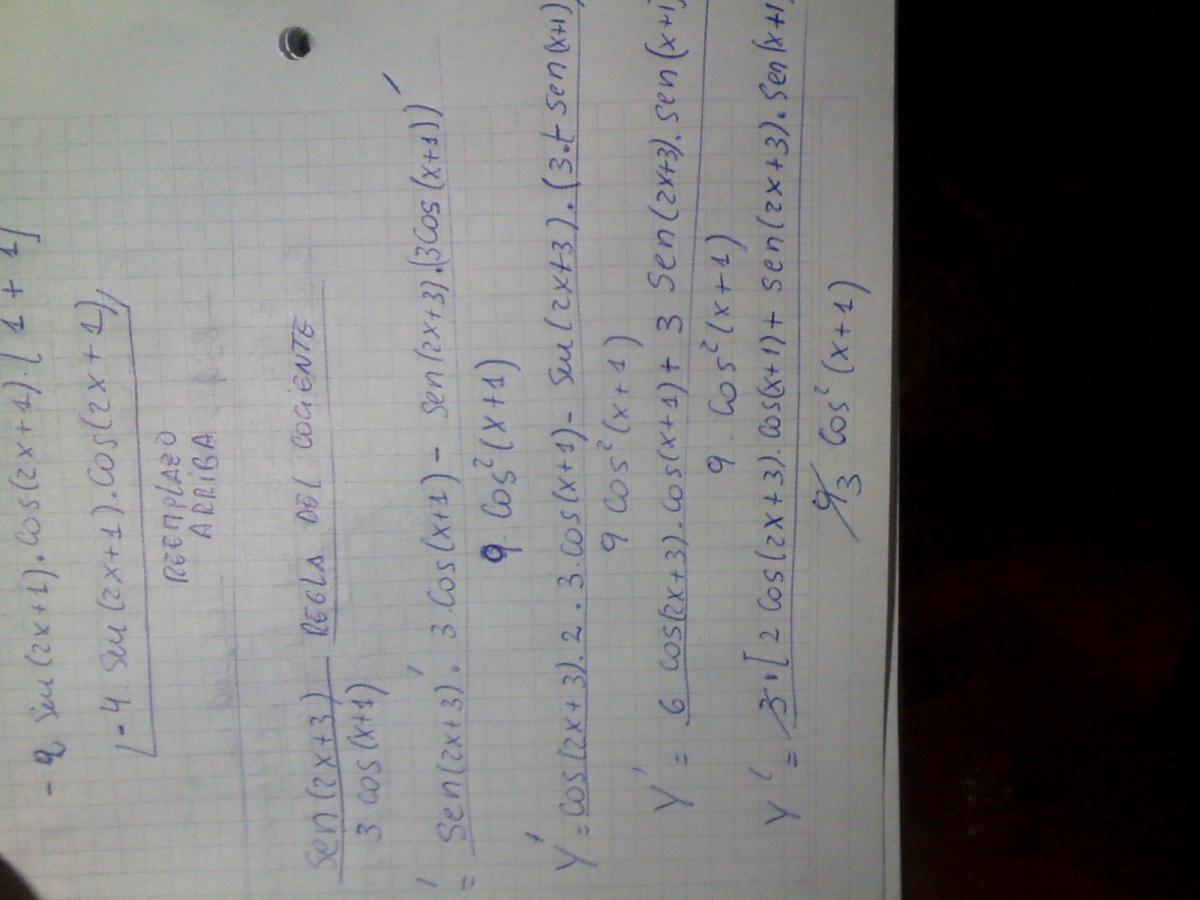 - 2 Sen(2x+1).Cos(2x+1).[1+1]
-4.Sen(2x+1).Cos(2x+1)//
REEMPLAZO
ARRIBA
Sen(2x+3) REGLA DEL COCIENTE
3 cos(x+1)
' = Sen(2x+3)'. 3.Cos(x+1) - Sen(2x+3).(3Cos(x+1))'
9.Cos²(x+1)
Y' = Cos(2x+3).2.3.Cos(x+1) - Sen(2x+3).(3.(-Sen(x+1)
9 Cos²(x+1)
Y' = 6 cos(2x+3).Cos(x+1) + 3 Sen(2x+3).Sen(x+1)
9.Cos²(x+1)
Y' = 3.[2 Cos(2x+3).Cos(x+1) + Sen(2x+3).Sen(x+1)
9 3 Cos²(x+1)